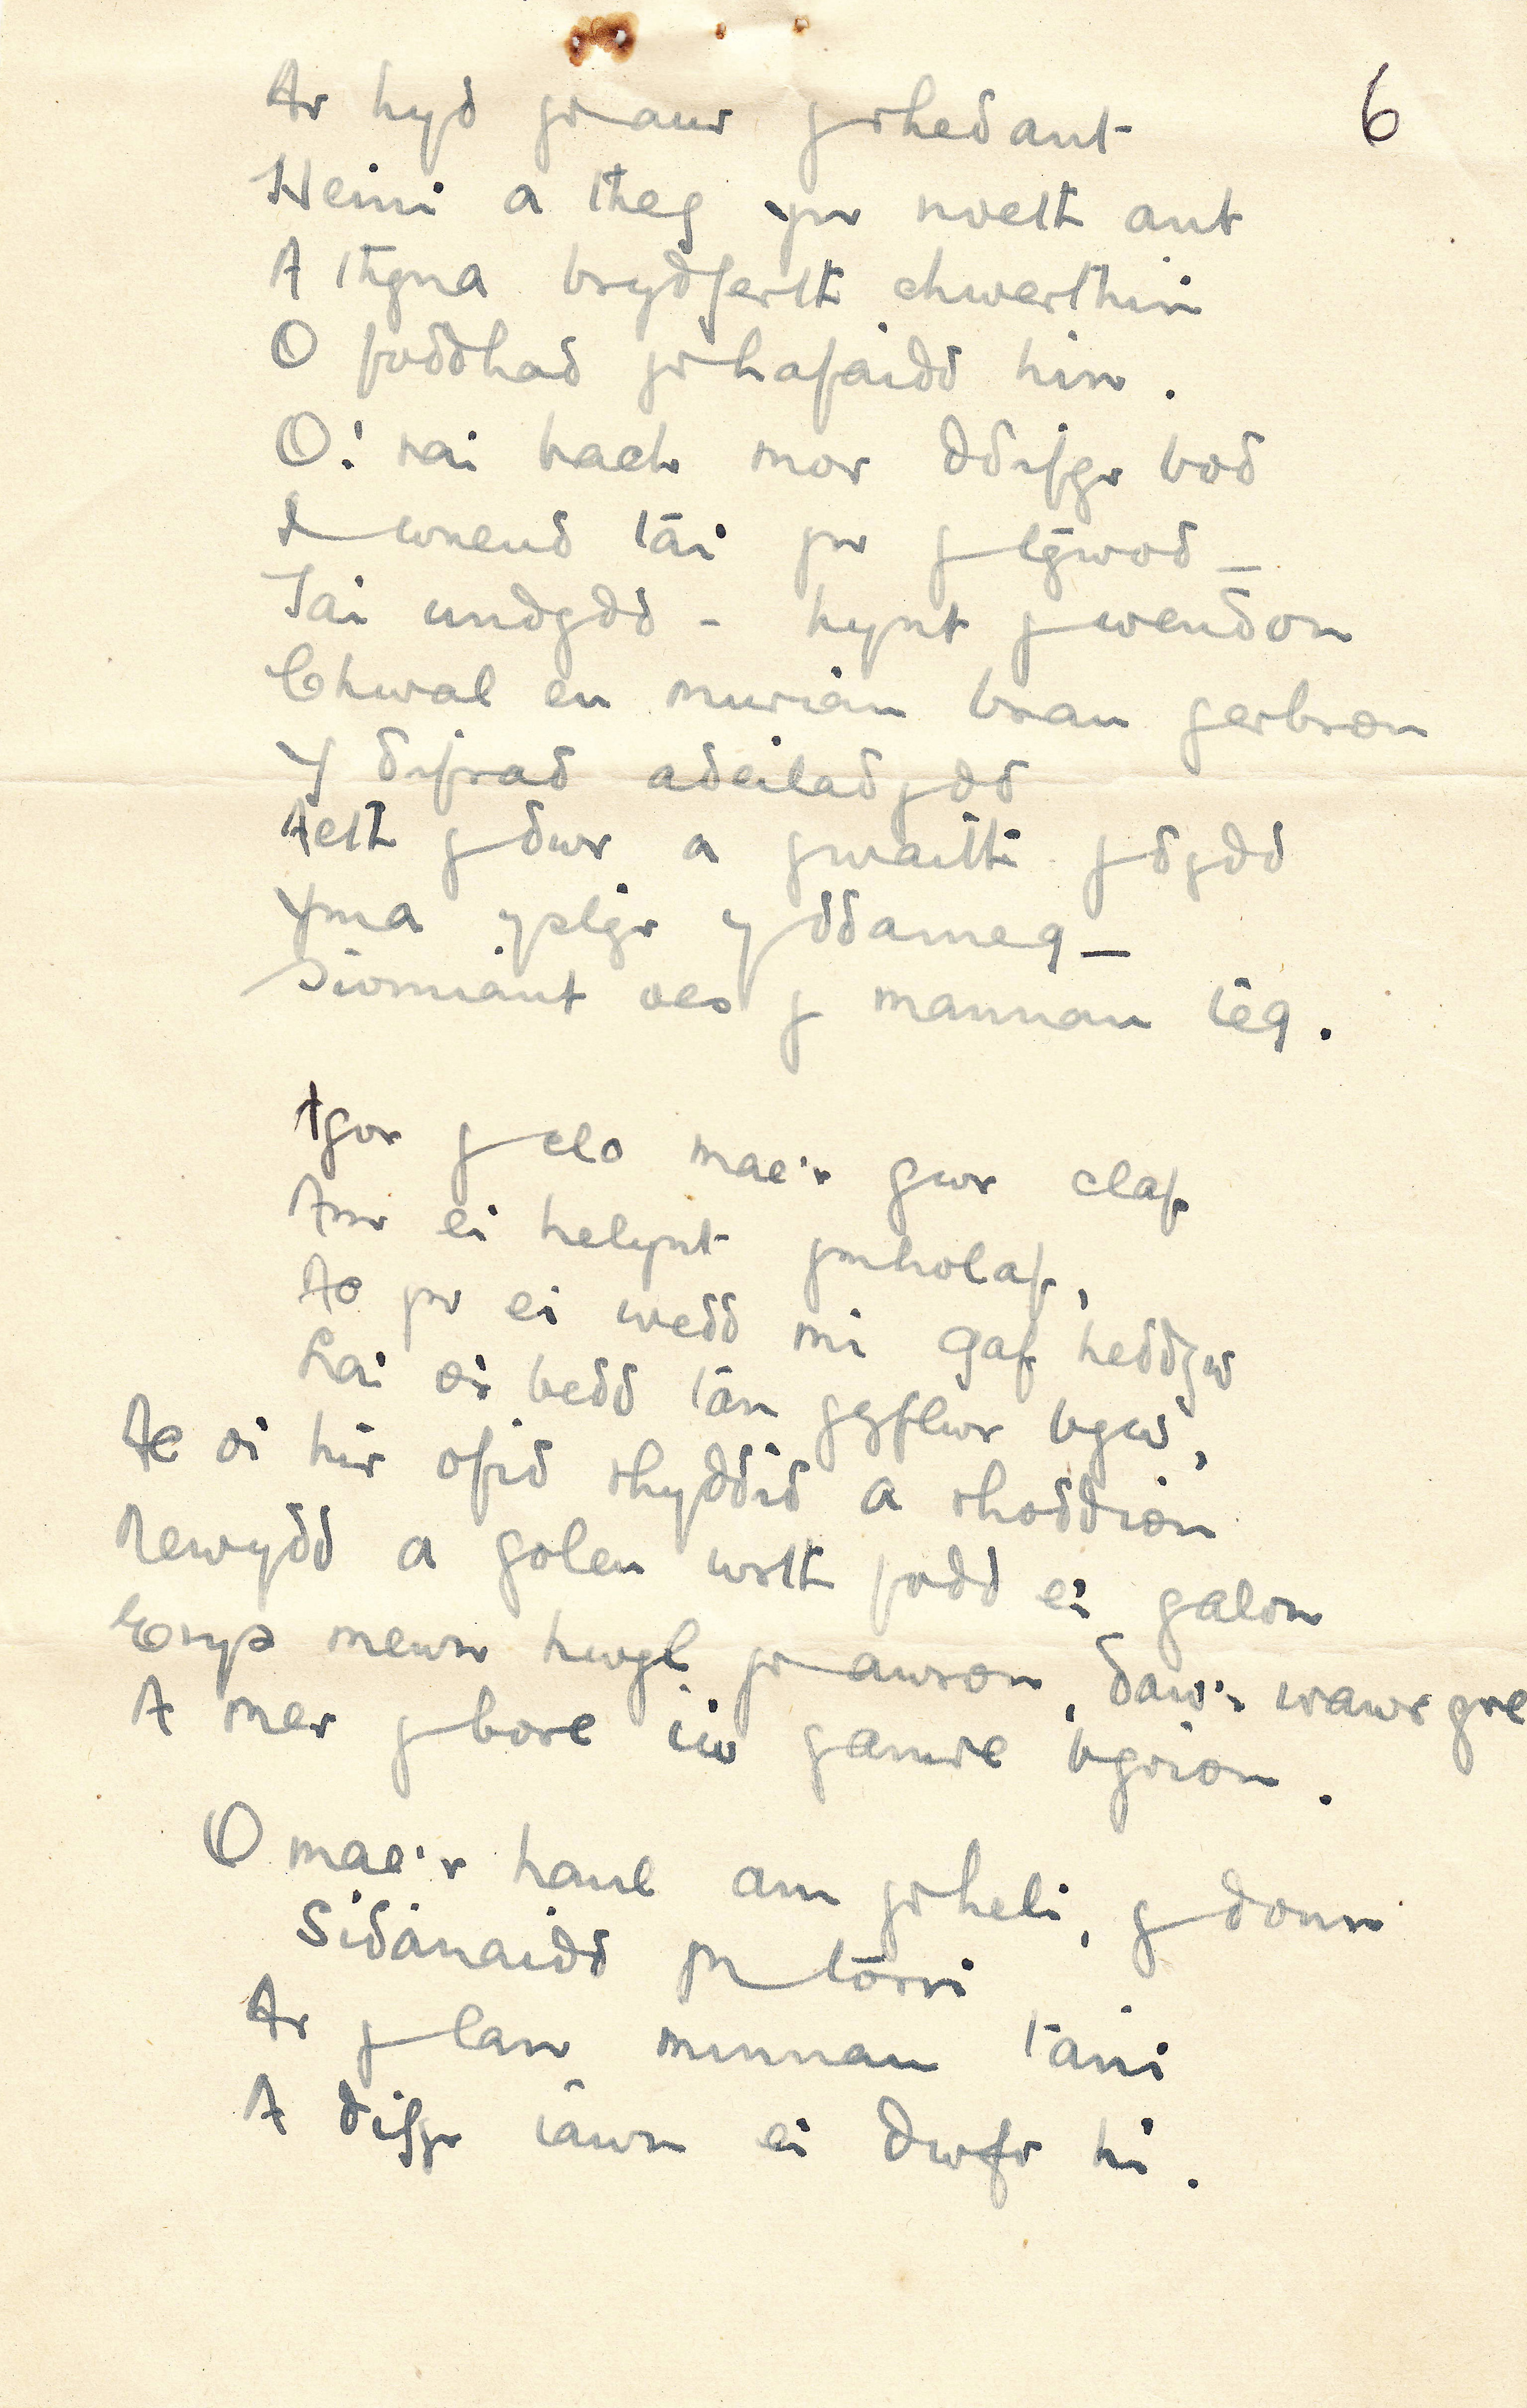 6
Ar hyd yr aur y rhedant
Heini a theg yn noeth ant
A thyna brydferth chwerthin
O foddhad yr hafaidd hin.
O! rai bach mor ddifyr bod
I wneud tai yn y tywod –
Tai undydd – hynt y wendon
Chwal eu muriau brau gerbron
Y difrad adeiladydd
Aeth y dwr a gwaith y dydd
Yma ystyr y ddameg –
Siomiant oes y mannau teg.
Agor y clo mae'r gwr claf
Am ei helynt ymholaf,
Ac yn ei wedd mi gaf heddyw
Rai o'i bedd tan gyflwr byw,
Ac o'i hir ofid rhyddid a rhoddion
Newydd a goleu wrth fodd ei galon
Erys mewn hwyl yr awron, daw'r wawr gre
A mer y bore i'w gamre byrion.
O mae'r haul am yr heli, y donn
Sidanaidd yn torri
Ar y lan minnau tani
A difyr iawn ei dwfr hi.